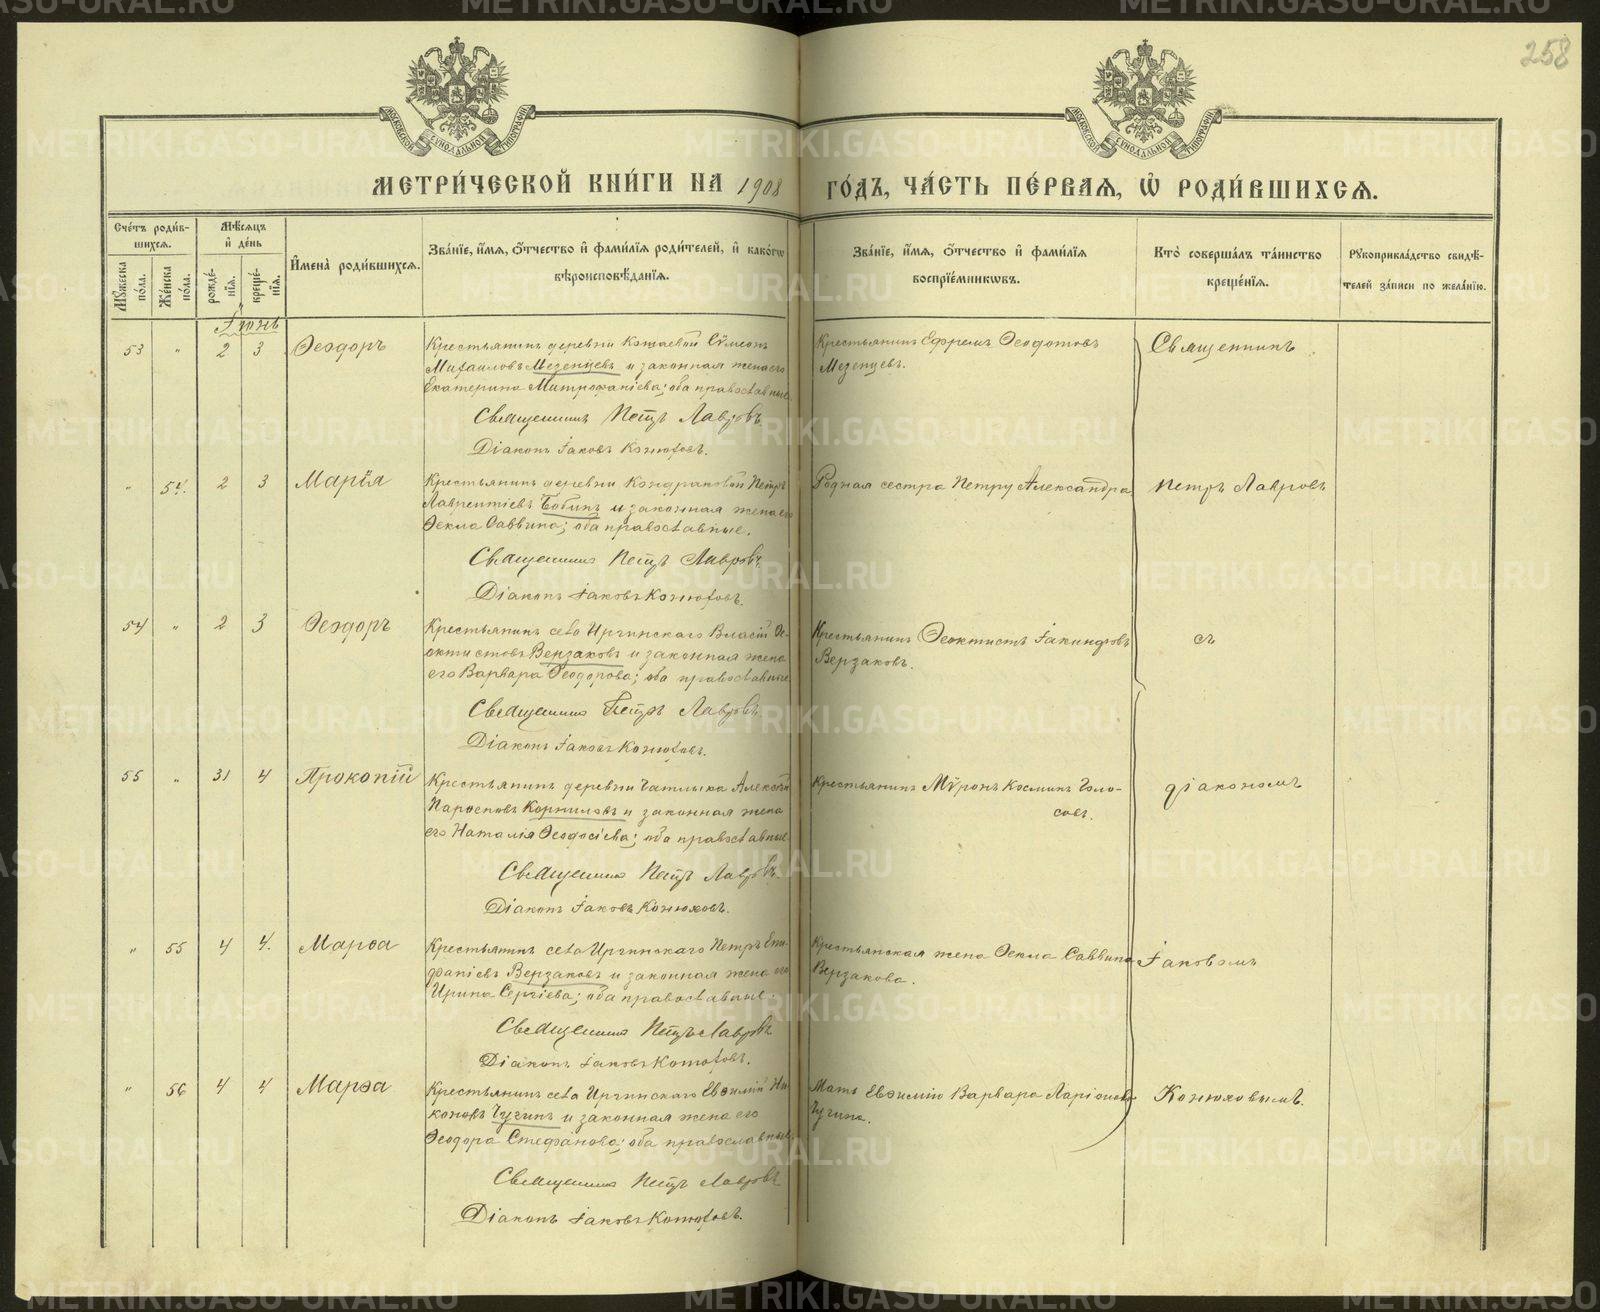 258
МОСКОВСКОЙ СѴНОДАЛЬНОЙ ТИПОГРАФІИ
МОСКОВСКОЙ СѴНОДАЛЬНОЙ ТИПОГРАФІИ
МЕТРИ́ЧЕСКОЙ КНИ́ГИ НА 1908 ГО́ДЪ, ЧА́СТЬ ПЕ́РВАЯ, Ѽ РОДИ́ВШИХСЯ.
Сче́тъ роди́в-
шихся.
Мѣ́сяцъ
и҆ де́нь
Мꙋ́жеска
по́ла.
Же́нска
по́ла.
рожде́-
нїя.
креще́-
нїя.
И҆мена̀ роди́вшихся.
Зва́нїе, и҆́мя, ѻ҆́тчество и҆ фами́лїя роди́телей, и҆ како́гѡ
вѣроисповѣ́данїя.
Зва́нїе, и҆́мя, ѻ҆́тчество и҆ фами́лїя
воспрїе́мникѡвъ.
Кто̀ соверша́лъ та́инство
креще́нїя.
Рꙋкоприкла́дство свидѣ́-
телей за́писи по жела́нїю.
Іюнь
53 " 2 3 Ѳеодоръ
Крестьянинъ деревни Кошаевой Сѵмеонъ
Михаиловъ Мезенцевъ и законная жена его
Екатерина Митрофаніева; оба православные
Священникъ Петръ Лавровъ.
Діаконъ Іаковъ Конюховъ.
Крестьянинъ Ефремъ Ѳеодотовъ
Мезенцевъ.
Священникъ
" 54. 2 3 Марія
Крестьянинъ деревни Кондраковой Петръ
Лаврентіевъ Бобинъ и законная жена его
Ѳекла Саввина; оба православные.
Священникъ Петръ Лавровъ
Діаконъ Іаковъ Конюховъ.
Родная сестра Петру Александра
Петръ Лавровъ
54 " 2 3 Ѳеодоръ
Крестьянинъ села Иргинскаго Власій Ѳе-
октистовъ Верзаковъ и законная жена
его Варвара Ѳеодорова; оба православные
Священникъ Петръ Лавровъ
Діаконъ Іаковъ Конюховъ.
Крестьянинъ Ѳеоктистъ Іакинфовъ
Верзаковъ.
съ
55 " 31 4 Прокопій
Крестьянинъ деревни Чатлыка Алексѣй
Корниловъ и законная жена
его Наталія Ѳеодосіева; оба православные
Священникъ Петръ Лавровъ.
Діаконъ Іаковъ Конюховъ.
Крестьянинъ Мѵронъ Космин Голо-
совъ.
діакономъ
" 55 4 4. Марѳа
Крестьянинъ села Иргинскаго Петръ Епи-
фаніевъ Верзаковъ и законная жена его
Ирина Сергіева; оба православные
Священникъ Петръ Лавровъ
Діаконъ Іаковъ Конюховъ.
Крестьянская жена Ѳекла Саввина
Верзакова.
Іаковомъ
" 56 4 4 Марѳа
Крестьянинъ села Иргинскаго Евѳимій Ни-
коновъ Чугинъ и законная жена его
Ѳеодора Стефанова; оба православные.
Священникъ Петръ Лавровъ
Діаконъ Іаковъ Конюховъ.
Мать Евѳимію Варвара Ларіонова
Чугина.
Конюховымъ.
METRIKI.GASO-URAL.RU